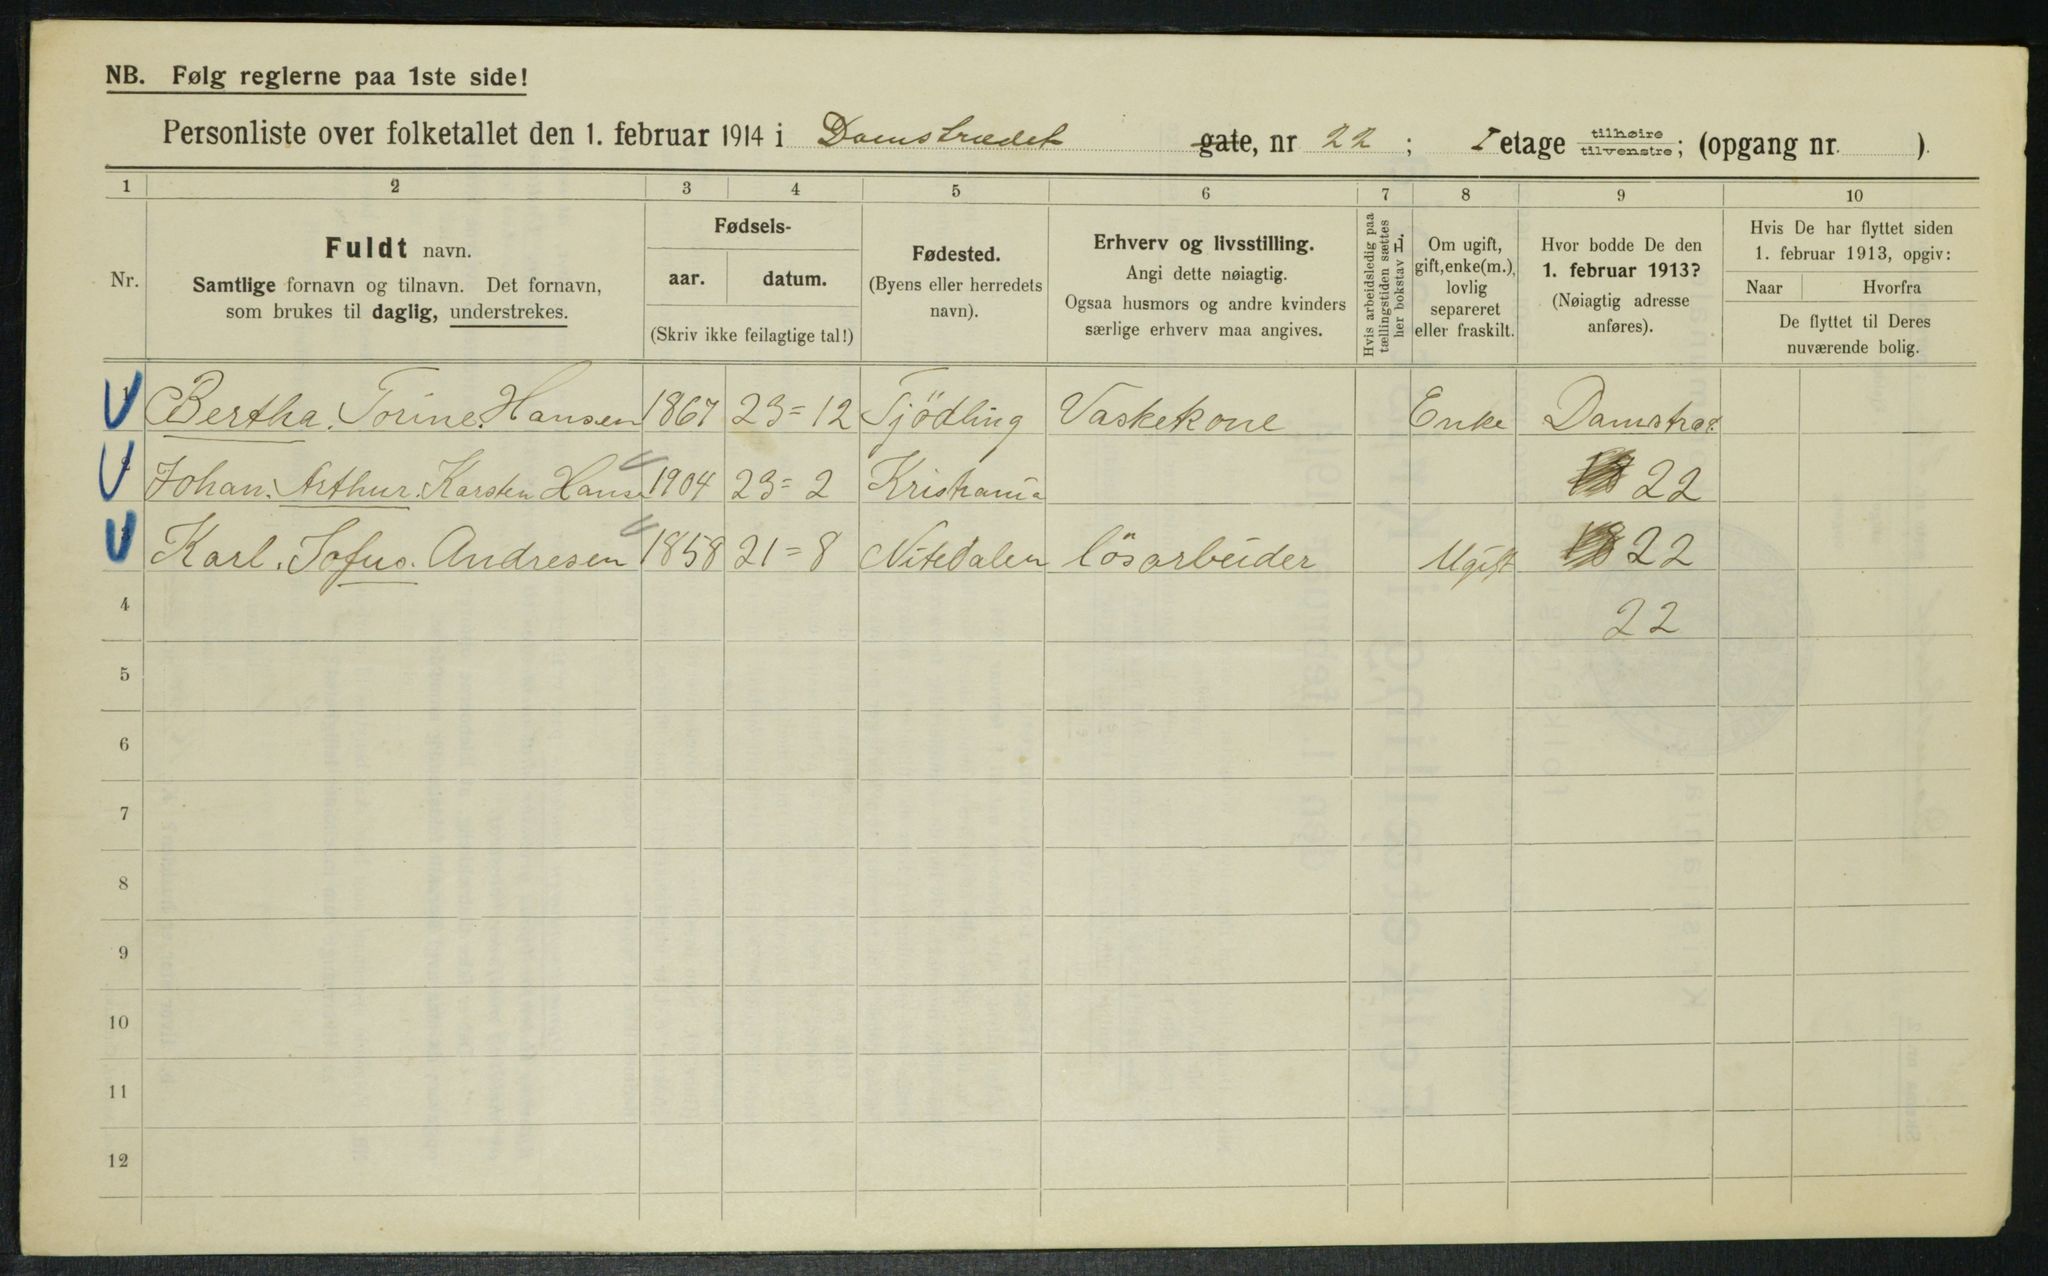 NB. Følg reglerne paa 1ste side!
Personliste over folketallet den 1. februar 1914 i Damstrædet gate, nr 22 ; I etage tilhøire tilvenstre; (opgang nr. ).
1 2 3 4 5 6 7 8 9 10
Nr.
Fuldt navn.
Samtlige fornavn og tilnavn. Det fornavn,
som brukes til daglig, understrekes.
Fødsels-
aar. datum.
(Skriv ikke feilagtige tal!)
Fødested.
(Byens eller herredets
navn).
Erhverv og livsstilling.
Angi dette nøiagtig.
Ogsaa husmors og andre kvinders
særlige erhverv maa angives.
Hvis arbeidsledig paa
tællingstiden sættes
her bokstav L.
Om ugift,
gift, enke(m.),
lovlig
separeret
eller fraskilt.
Hvor bodde De den
1. februar 1913?
(Nøiagtig adresse
anføres).
Hvis De har flyttet siden
1. februar 1913, opgiv:
Naar Hvorfra
De flyttet til Deres
nuværende bolig.
Bertha. Torine. Hansen 1867 23=12 Tjödling Vaskekone Enke Damstræ
Johan. Arthur. Karsten Hanse 1904 23=2 Kristiania 22
Karl. Sofus. Andresen 1858 21=8 Nitedalen lösarbeider Ugift 22
4 22
5
6
7
8
9
10
11
12